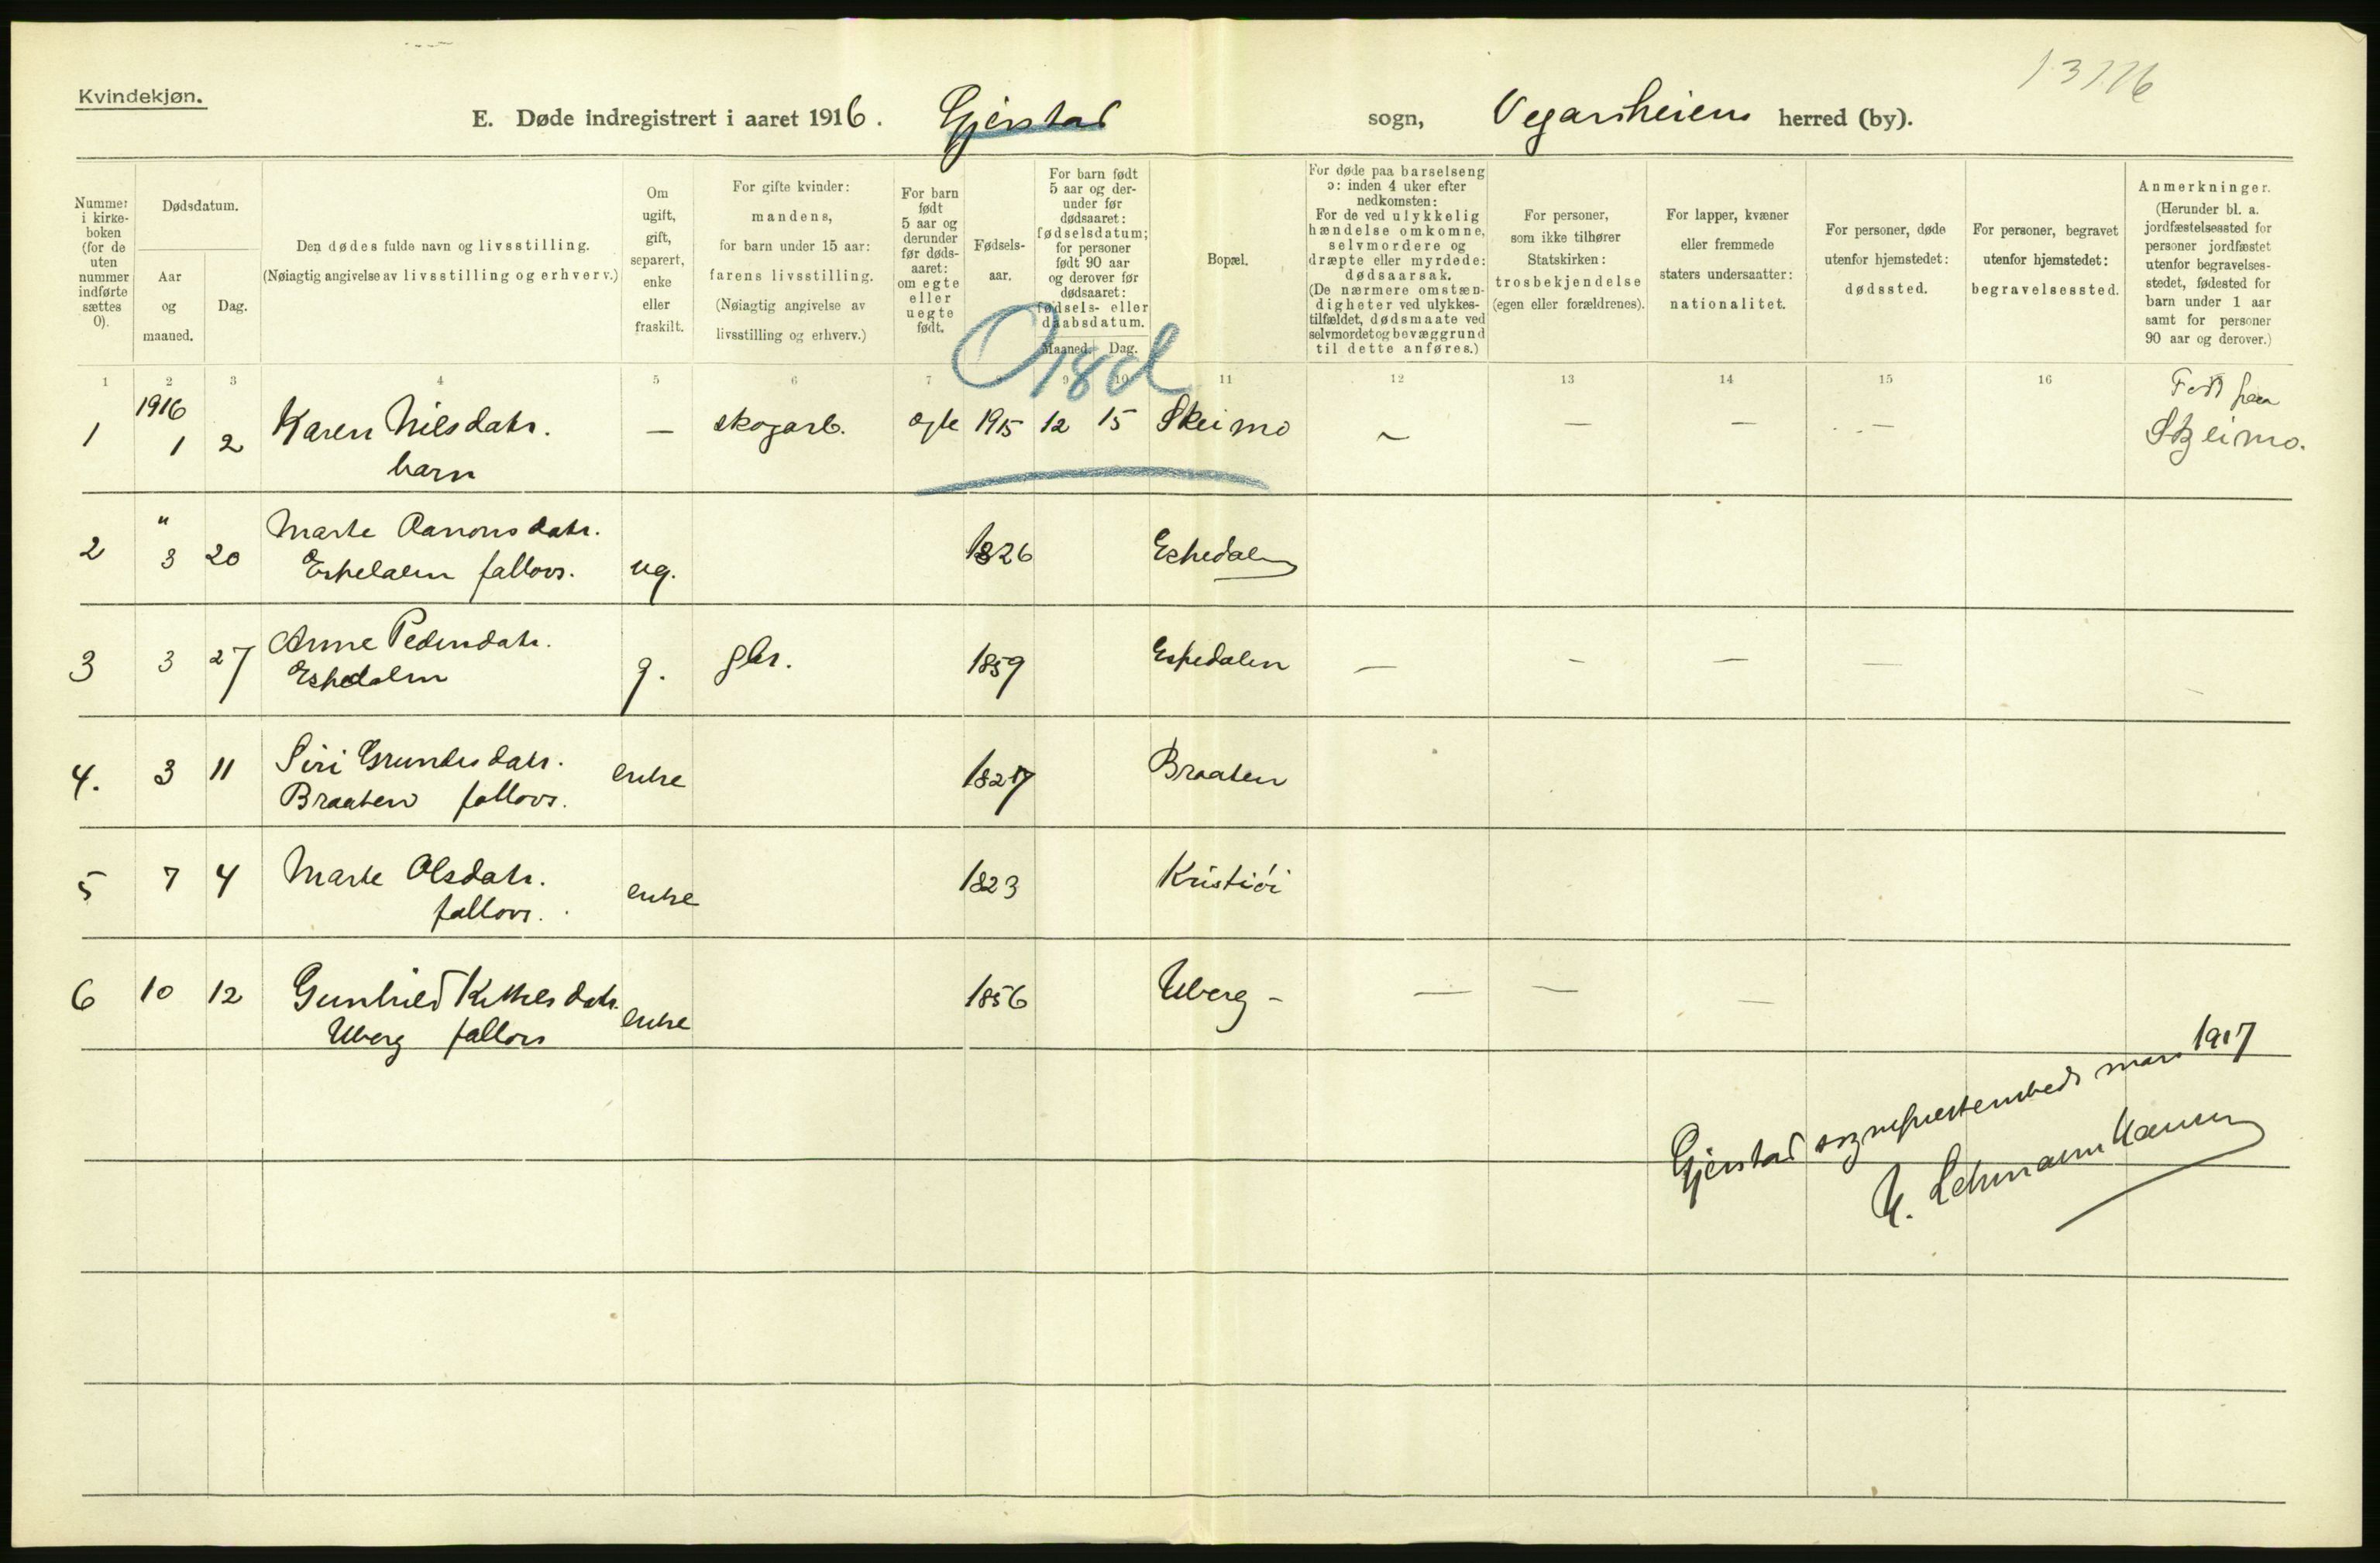 13716
Kvindekjøn.
E. Døde indregistrert i aaret 1916. Gjerstad sogn, Vegarsheiens herred (by).
Nummer i kirkeboken (for de uten nummer indførte sættes 0).
Dødsdatum.
Aar og maaned.
Dag.
Den dødes fulde navn og livsstilling.
(Nøiagtig angivelse av livsstilling og erhverv.)
Om ugift, gift, separert, enke eller fraskilt.
For gifte kvinder: mandens, for barn under 15 aar: farens livsstilling.
(Nøiagtig angivelse av livsstilling og erhverv.)
For barn født 5 aar og derunder før døds-aaret: om egte eller uegte født.
Fødsels-aar.
For barn født 5 aar og der-under før dødsaaret: fødselsdatum; for personer født 90 aar og derover før dødsaaret: fødsels- eller daabsdatum.
Maaned. Dag.
Bopæl.
For døde paa barselseng ɔ: inden 4 uker efter nedkomsten:
For de ved ulykkelig hændelse omkomne, selvmordere og dræpte eller myrdede: dødsaarsak.
(De nærmere omstæn-digheter ved ulykkes-tilfældet, dødsmaate ved selvmordet og bevæggrund til dette anføres.)
For personer, som ikke tilhører Statskirken: trosbekjendelse (egen eller forældrenes).
For lapper, kvæner eller fremmede staters undersaatter: nationalitet.
For personer, døde utenfor hjemstedet: dødssted.
For personer, begravet utenfor hjemstedet: begravelsessted.
Anmerkninger.
(Herunder bl. a. jordfæstelsessted for personer jordfæstet utenfor begravelses-stedet, fødested for barn under 1 aar samt for personer 90 aar og derover.)
1 2 3 4 5 6 7 8 9 10 11 12 13 14 15 16
18d
1916
1 1 2 Karen Nilsdatr. — skogarb. egte 1915 12 15 Skeimo ~ — — — Født paa
barn Skeimo.
2 " 3 20 Marte Aanonsdatr.
Espedalen fattovs. ug. 1826 Espedalen
3 3 27 Anne Pedersdatr.
Espedalen g. gbr. 1859 Espedalen — — — —
4. 3 11 Siri Grundesdatr. enke 1827 Braaten
Braaten fattovs.
5 7 4 Marte Olsdatr. enke 1823
fattovs.
6 10 12 Gunhild Kittelsdatr. enke 1856 Uberg - — — —
Uberg fattovs
Gjerstad sogneprestembede mars 1917
Lehmann Hansen